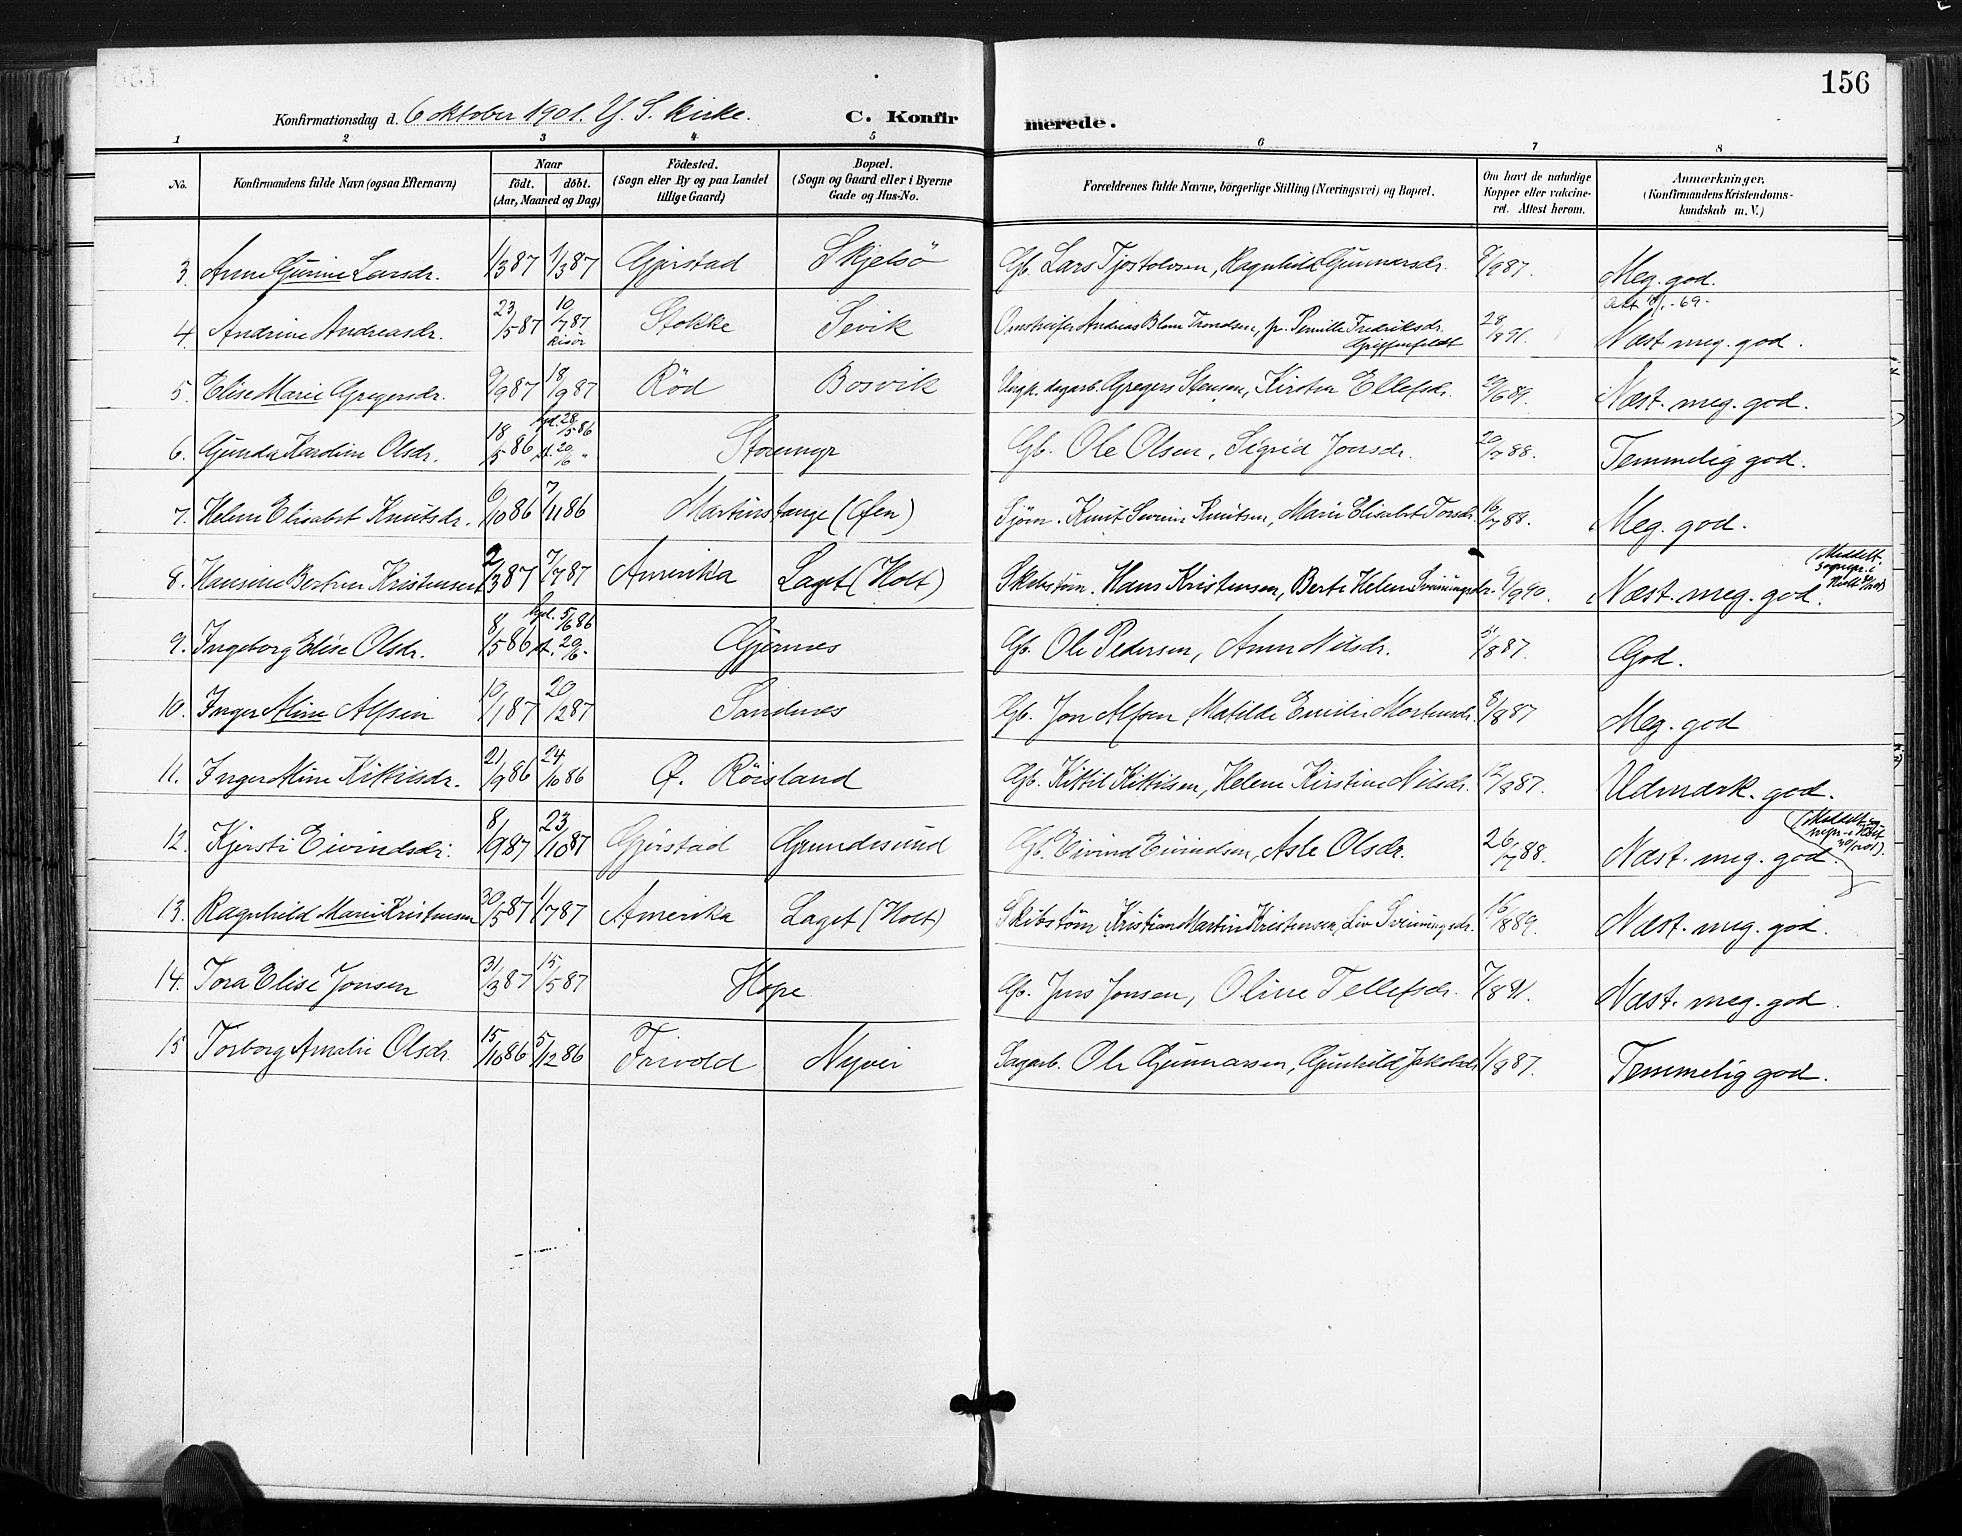 156
Konfirmationsdag d. 6 oktober 1901. Y. S. kirke. C. Konfirmerede.
1 2 3 4 5 6 7 8
No. Konfirmandens fulde Navn (ogsaa Efternavn) Naar födt. döbt. (Aar, Maaned og Dag) Födested. (Sogn eller By og paa Landet tillige Gaard) Bopæl. (Sogn og Gaard eller i Byerne Gade og Hus-No. Forældrenes fulde Navne, börgerlige Stilling (Næringsvei) og Bopæl. Om havt de naturlige Kopper eller vakcineret. Attest herom. Anmærkninger. (Konfirmandens Kristendomskundskab m. V.)
3. Anne Gunine Larsdr. 1/3 87 1/3 87 Gjerstad Skjelsö Gb. Lars Tjostolvsen, Ragnhild Gunnarsdr. 8/9 87. Meg. god.
4. Andrine Andreasdr. 23/5 87 10/7 87 Risör Stokke Sevik Andreas Blom Trondsen, Pernille Fredriksdr. Griffenfeldt 28/8 91. Att -69- Næst. meg. god.
5. Elise Marie Gregersdr. 9/9 87 18/9 87 Röd Bosvik Gregers Stensen, Kirstin Ellefsdr. Næst. meg. god.
6. Gunda Karoline Olsdr. 18/5 86 hjd. 28/5 86 st. 20/6 " Storemyr Gb. Ole Olsen, Sigrid Jonsdr. 20/7 88. Temmelig god.
7. Helene Elisabet Knutsdr. 6/10 86 7/11 86 Martinstange (Öen) Sjöm. Knut Severin Knutsen, Marie Elisabet Torsdr. 16/7 88. Meg. god.
8. Hansine Bertine Kristensen 2/3 87 7/7 87 Amerika Laget (Holt) Skibstöm. Hans Kristensen, Berte Helene Sveinungsdr. 9/9 90. Næst. meg. god. (Meddelt sognepr. i Holt
9. Ingeborg Elise Olsdr. 8/5 86 hjd. 5/6 86 st. 20/6. Gjernes Gb. Ole Pedersen, Anne Nilsdr. /8 87. God.
10. Inger Aline Alfsen 10/1 87 20/2 87 Sandnes Gb. Jon Alfsen, Matilde Emilie Mortensdr. 8/8 87 Meg. god
11. Inger Aline Kittilsdr. 21/9 86 24/10 86 Ö. Röisland Gb. Kittil Kittilsen, Helene Kirstine Nilsdr. 12/8 87. Udmærk. god.
12. Kjersti Eivindsdr. 8/9 87 23/10 87 Gjerstad Grundesund Gb. Eivind Eivindsen, Asle Olsdr. 26/7 88. Næst. meg. god. (Meddelt sognpr. i Holt
13. Ragnhild Marie Kristensen 30/5 87 1/7 87 Amerika Laget (Holt) Skibstöm Kristian Martin Kristensen, Liv Sveinungsdr. 16/8 89. Næst. meg. god.
14. Tora Elise Jonsen 31/3 87 15/5 87 Hope Gb. Jens Jonsen, Oline Tellefsdr. 7/8 91. Næst. meg. god.
15 Torborg Amalie Olsdr. 15/10 86 5/12 86 Frivold Nyvei Sagarb. Ole Gunnarsen, Gunhild Jakobsdr. 1/9 87. Temmelig god.